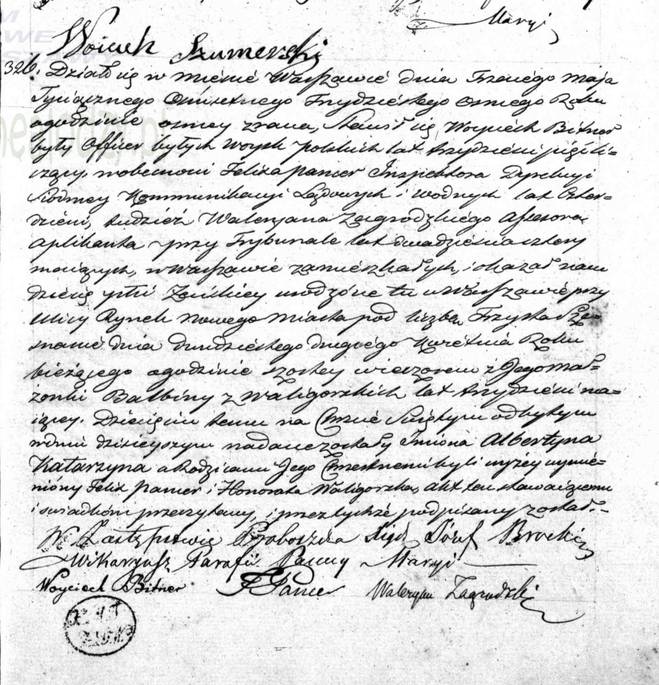 Maryi
Woiciech Szumerski
326. Działo się w mieście Warszawie dnia Trzeciego Maja
Tysiącznego Osmsetnego Trzydziestego Osmego Roku
o godzinie osmey z rana, Stawił się Woyciech Bitner
były Officer byłych Woysk polskich lat trzydzieści pięć li-
czący w obecności Felixa Pamer Inspektora Dyrekcyi
Kommunikacyi Lądowych i Wodnych lat Czter-
dzieści, tudzież Waleryana Zagrodzkiego Assesora
Aplikanta przy Trybunale lat dwadzieścia cztery
maiących, w Warszawie zamieszkałych, i okazał nam
dziecię płci Żeńskiey urodzone tu w Warszawie przy
Ulicy Rynek Nowego Miasta pod liczbą Trzysta
dnia dwudziestego drugiego Kwietnia Roku
bieżącego o godzinie szostey wieczorem z Jego Mał-
żonki Balbiny z Waligorskich lat trzydzieści ma-
iącey. Dziecięciu temu na Chrzcie Świętym odbytym
w dniu dzisieyszym nadane zostały Imiona Albertyna
Katarzyna a Rodzicami Jego Chrzestnemi byli wyżey wymie-
niony Felix Pamer i Honorata Waligorska, Akt ten stawaiącemu
i świadkom przeczytany, i przez tychże podpisany został.-
W Zastępstwie Proboszcza Xiądz Józef Brocki
Wikaryusz Parafii Panny Maryi
Woyciech Bitner F Pamer Waleryan Zagrodzki